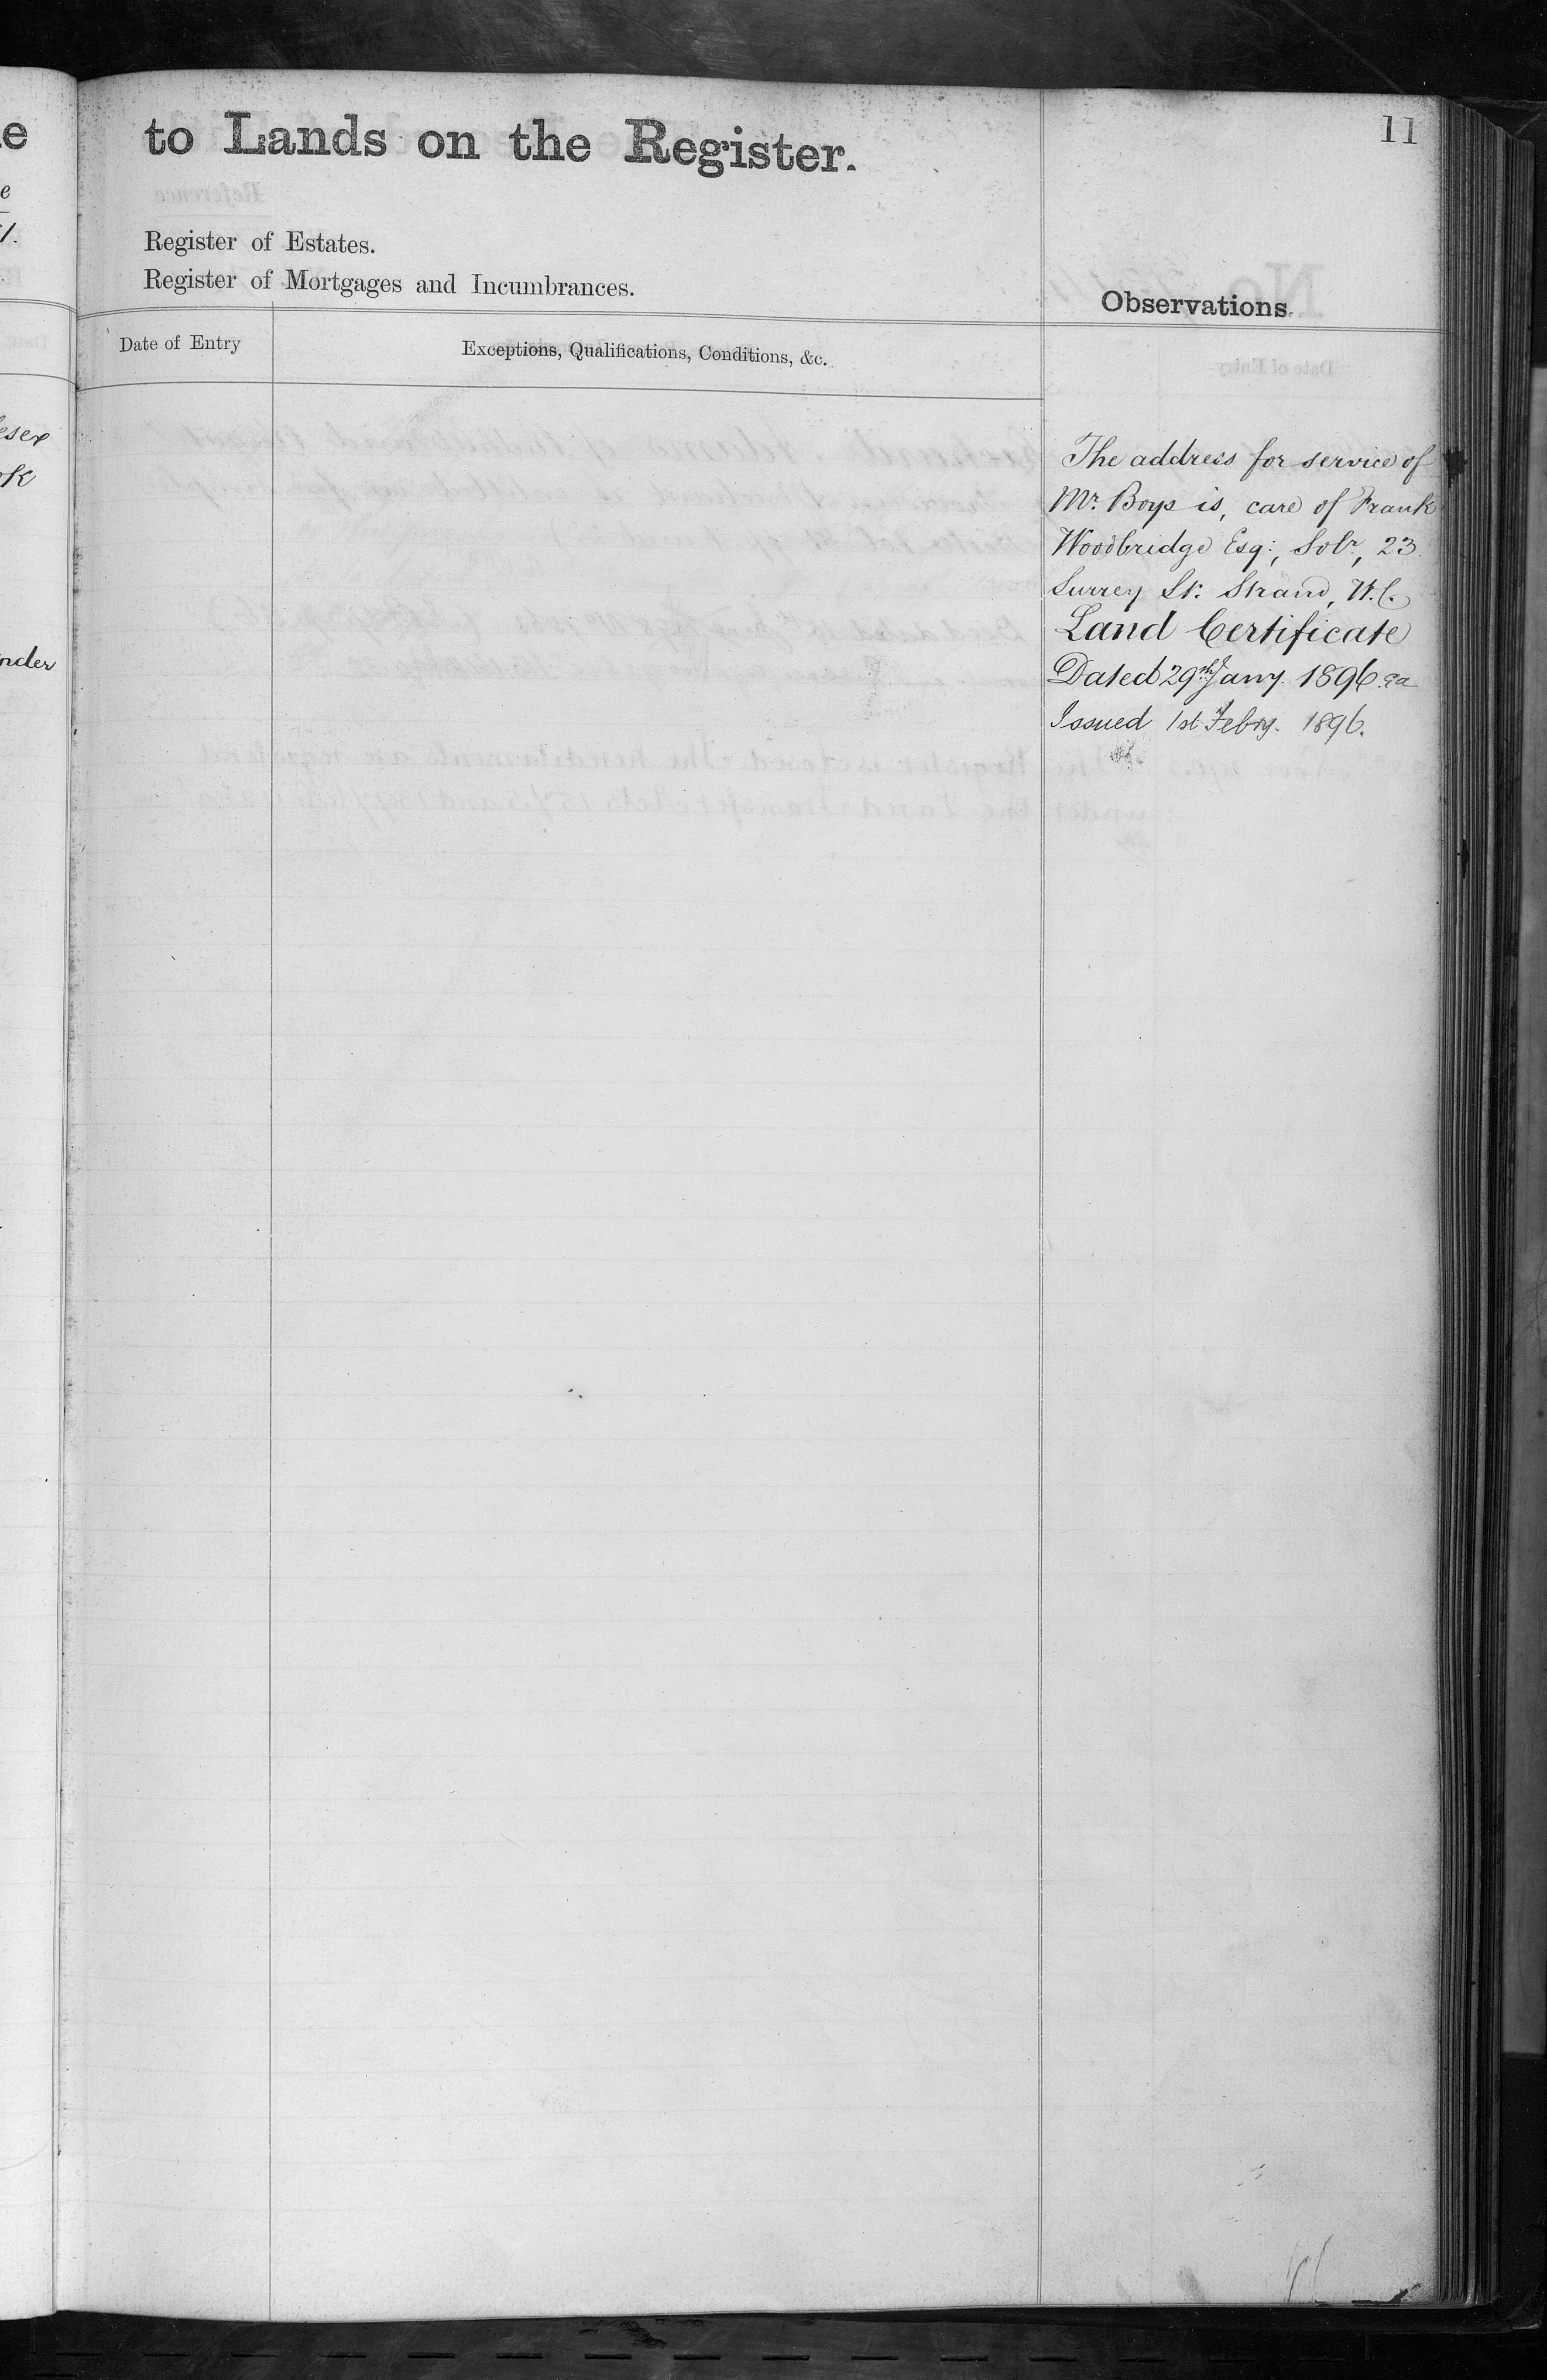 to Lands on the Register.
11
Register of Estates.
Register of Mortgages and Incumbrances.
Observations.
Date of Entry
Exceptions, Qualifications, Conditions, &c.
The address for service of
Mr. Boys is, care of Frank
Woodbridge Esq:, Solr, 23
Surrey St. Strand, W.C.
Land Certificate
Dated 29th Jany. 1896
Issued 1st Febry. 1896.
esex
nder